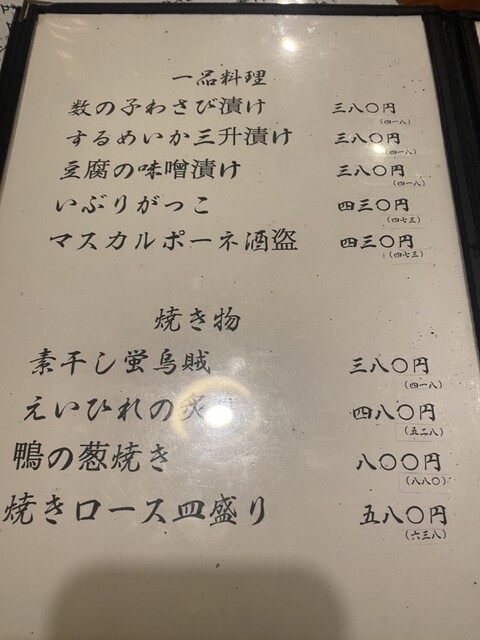 一品料理
数の子わさび漬け 三八〇円
(四一八)
するめいか三升漬け 三八〇円
(四一八)
豆腐の味噌漬け 三八〇円
(四一八)
いぶりがっこ 四三〇円
(四七三)
マスカルポーネ酒盗 四三〇円
(四七三)
焼き物
素干し蛍烏賊 三八〇円
(四一八)
えいひれの炙 四八〇円
(五二八)
鴨の葱焼き 八〇〇円
(八八〇)
焼きロース皿盛り 五八〇円
(六三八)